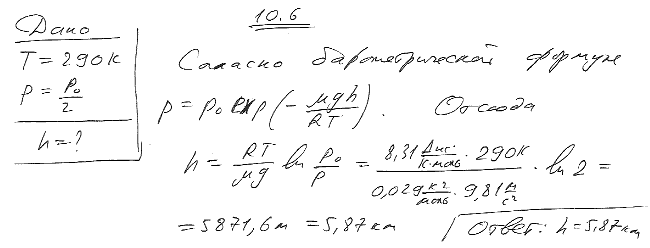 10.6
Дано
T = 290К
P = P₀/2
h = ?
Согласно барометрической формуле
p = p₀ exp(- μgh/RT). Отсюда
h = RT/μg ln P₀/P = (8,31 Дж/К·моль · 290К)/(0,029 кг/моль · 9,81 м/с²) · ln 2 =
= 5871,6 м = 5,87 км
Ответ: h = 5,87 км